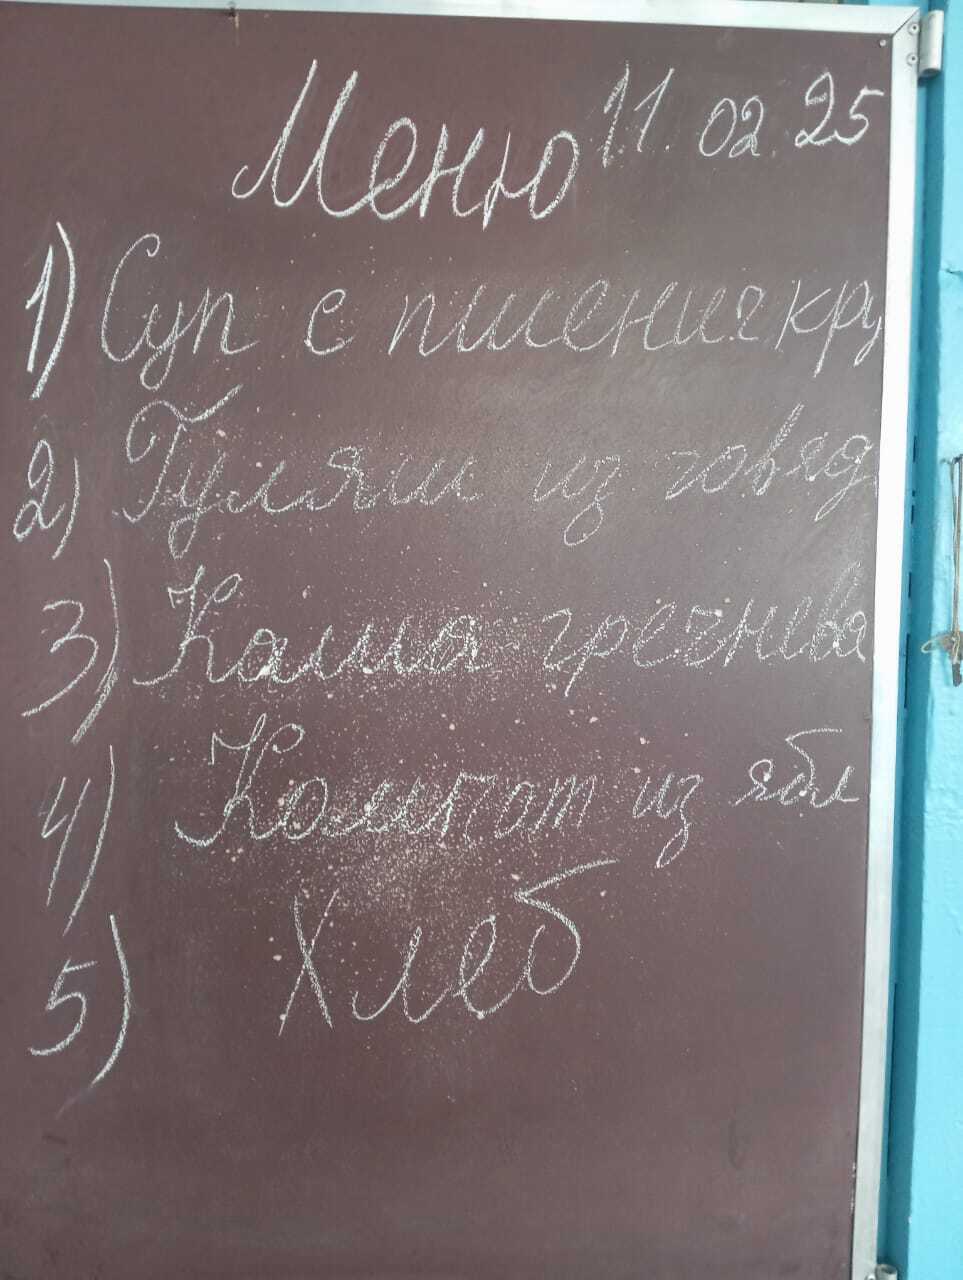 Меню 11.02.25
1) Суп с пшенич кру
2) Гуляш из говяд
3) Каша гречнева
4) Компот из ябл
5) Хлеб